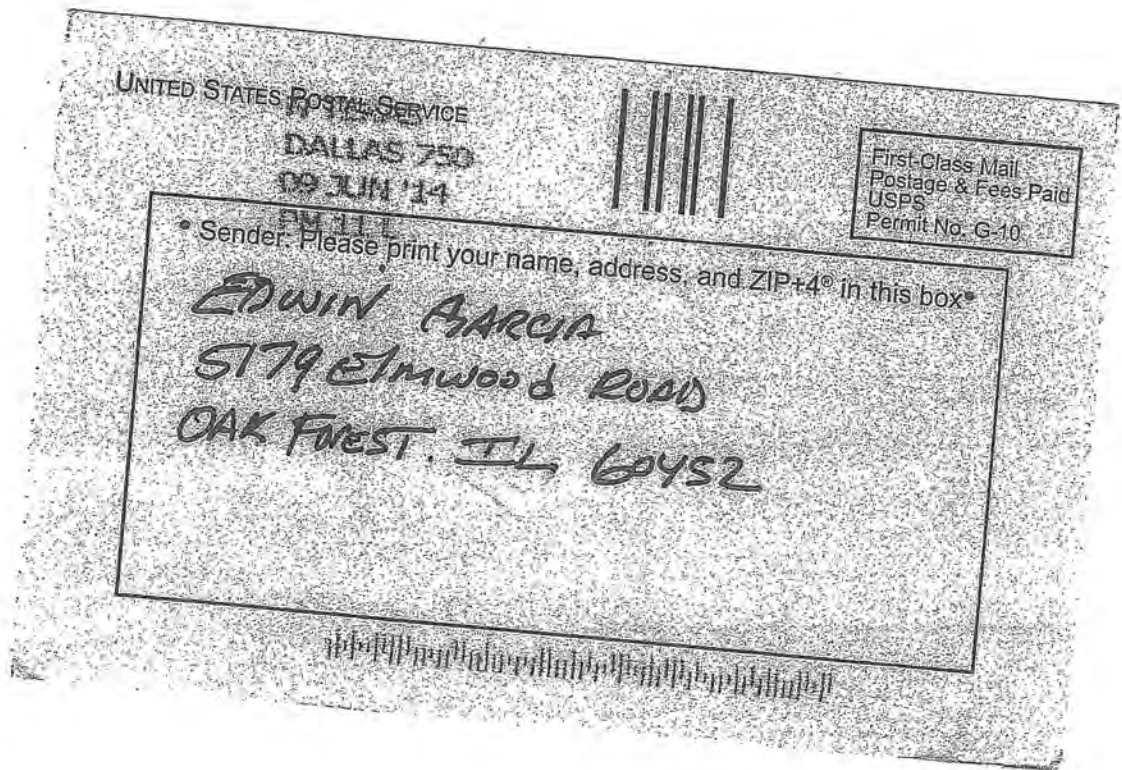 UNITED STATES POSTAL SERVICE
DALLAS 750
09 JUN '14
PM 11 L
First-Class Mail
Postage & Fees Paid
USPS
Permit No. G-10
• Sender: Please print your name, address, and ZIP+4® in this box•
EDWIN GARCIA
5179 Elmwood ROAD
OAK FOREST. IL 60452